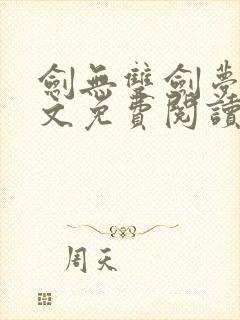 劍無雙劍夢
文免費閱讀
周天